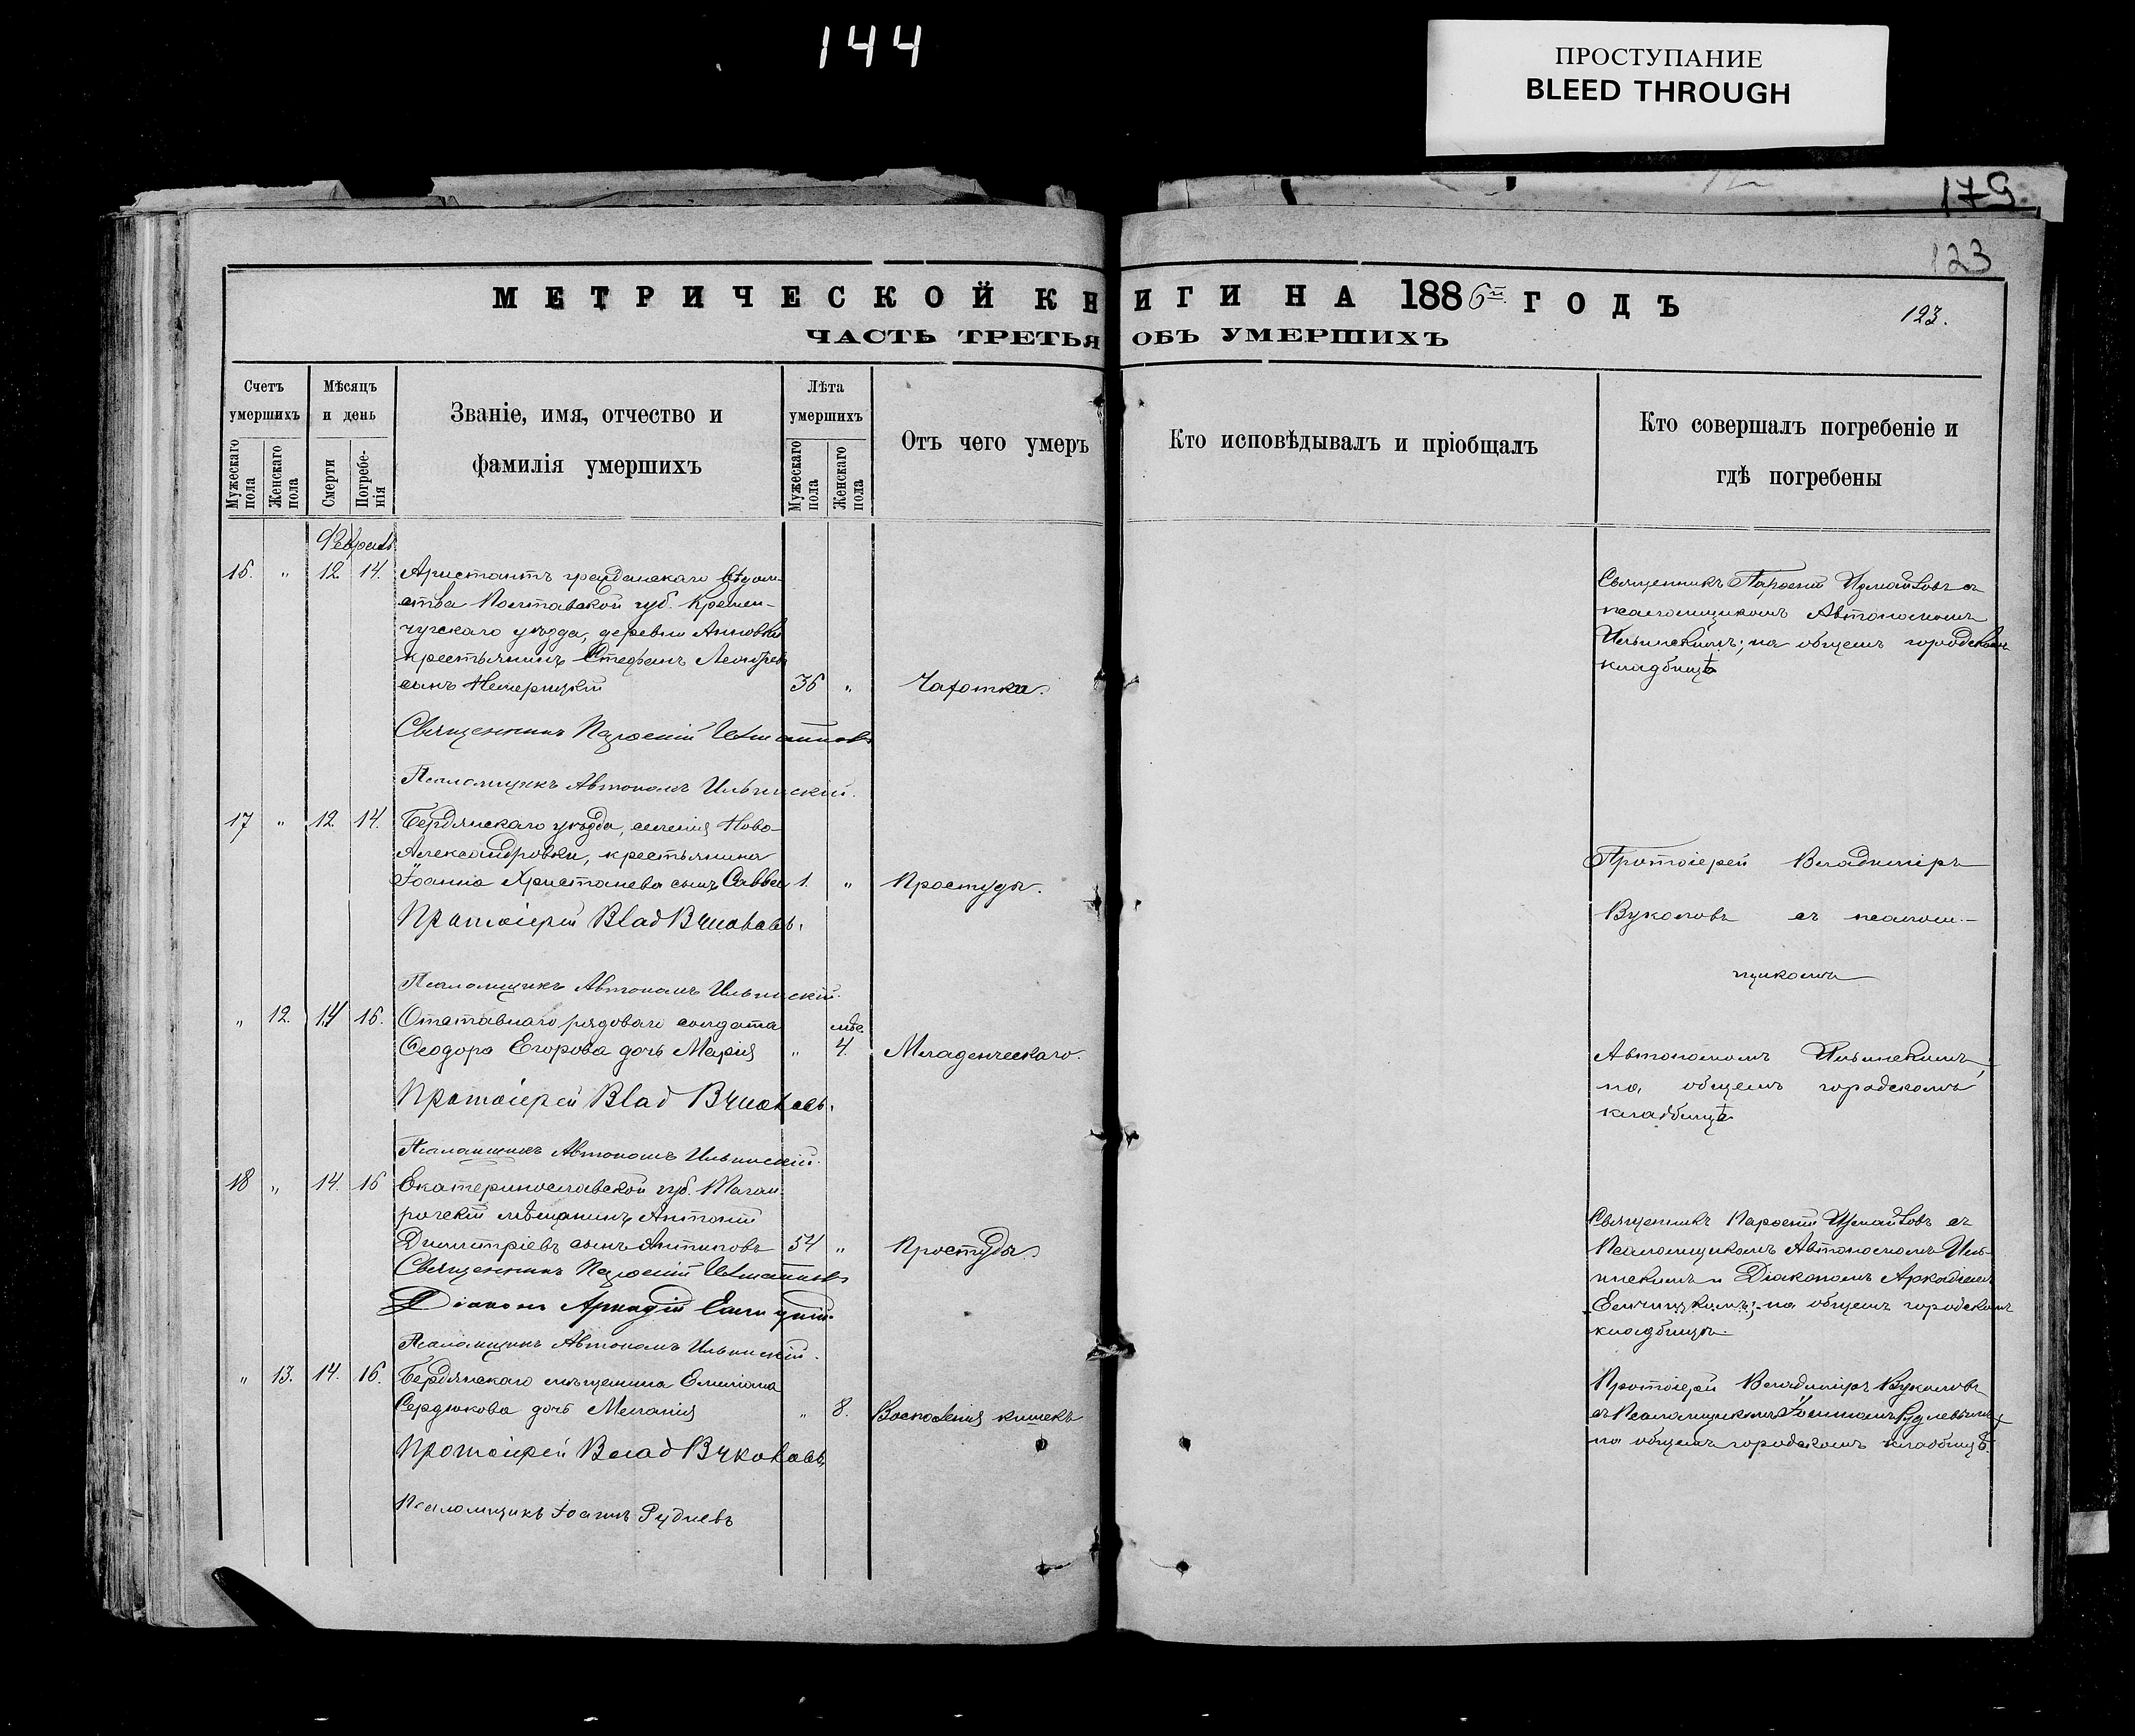 144
ПРОСТУПАНИЕ
BLEED THROUGH
179
123
МЕТРИЧЕСКОЙ КНИГИ НА 1886й ГОДЪ
123.
ЧАСТЬ ТРЕТЬЯ ОБЪ УМЕРШИХЪ
Счетъ умершихъ
Мужескаго пола
Женскаго пола
Мѣсяцъ и день
Смерти
Погребенія
Званіе, имя, отчество и
фамилія умершихъ
Лѣта умершихъ
Мужескаго пола
Женскаго пола
Отъ чего умеръ
Кто исповѣдывалъ и пріобщалъ
Кто совершалъ погребеніе и
гдѣ погребены
Февраль
16. " 12 14. Арестантъ гражданскаго вѣдом-
ства Полтавской губ. Кремен-
чугскаго уѣзда, деревни Анновки
крестьянинъ Стефанъ
сынъ 36 " Чахотка.
Священникъ Парѳеній Измайловъ съ
псаломщикомъ Автономомъ
Ильинскимъ; на общемъ городскомъ
кладбищѣ
Священникъ Парѳеній Измайловъ
Псаломщикъ Автономъ Ильинскій.
17 " 12 14. Бердянскаго уѣзда, селенія Ново-
Александровки, крестьянина
Іоанна Христанева сынъ Савва 1. " Простуды.
Протоіерей Владиміръ
Вуколовъ съ псалом-
щикомъ
Протоіерей Влад Вуколовъ.
Псаломщикъ Автономъ Ильинскій.
" 12. 14 16. Отставнаго рядоваго солдата
мѣс.
Ѳеодора Егорова дочь Марія " 4. Младенческаго.
Автономомъ Ильинскимъ,
на общемъ городскомъ
кладбищѣ
Протоіерей Влад Вуколовъ.
Псаломщикъ Автономъ Ильинскій.
18 " 14. 16 Екатеринославской губ. Таган-
рогскій мѣщанинъ Антоній
Димитріевъ сынъ Антиповъ 54 " Простуды.
Священникъ Парѳеній Измайловъ съ
Псаломщикомъ Автономомъ Иль-
инскимъ и Діакономъ Аркадіемъ
на общемъ городскомъ
кладбищѣ
Священникъ Парѳеній Измайловъ
Діаконъ Аркадій
Псаломщикъ Автономъ Ильинскій.
" 13. 14. 16. Бердянскаго мѣщанина Емиліана
Сердюкова дочь Меланія " 8. Воспаленія кишекъ
Протоіерей Владиміръ Вуколовъ
съ Псаломщикомъ Іоанномъ Рудневымъ
на общемъ городскомъ кладбищѣ.
Протоіерей Влад Вуколовъ
Псаломщикъ Іоаннъ Рудневъ